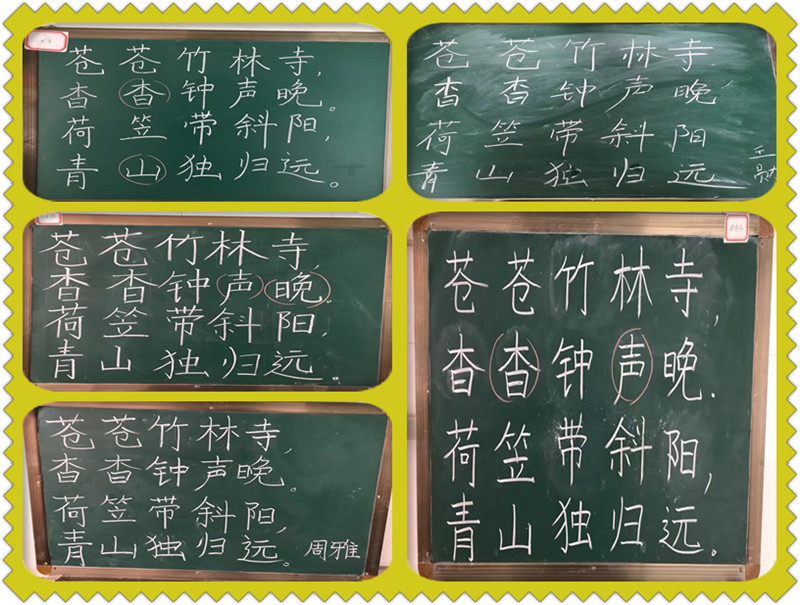 苍苍竹林寺,
杳杳钟声晚。
荷笠带斜阳,
青山独归远。
苍苍竹林寺
杳杳钟声晚
荷笠带斜阳
青山独归远
苍苍竹林寺,
杳杳钟声晚。
荷笠带斜阳,
青山独归远。
苍苍竹林寺,
杳杳钟声晚.
荷笠带斜阳,
青山独归远。
苍苍竹林寺,
杳杳钟声晚。
荷笠带斜阳,
青山独归远。
周雅